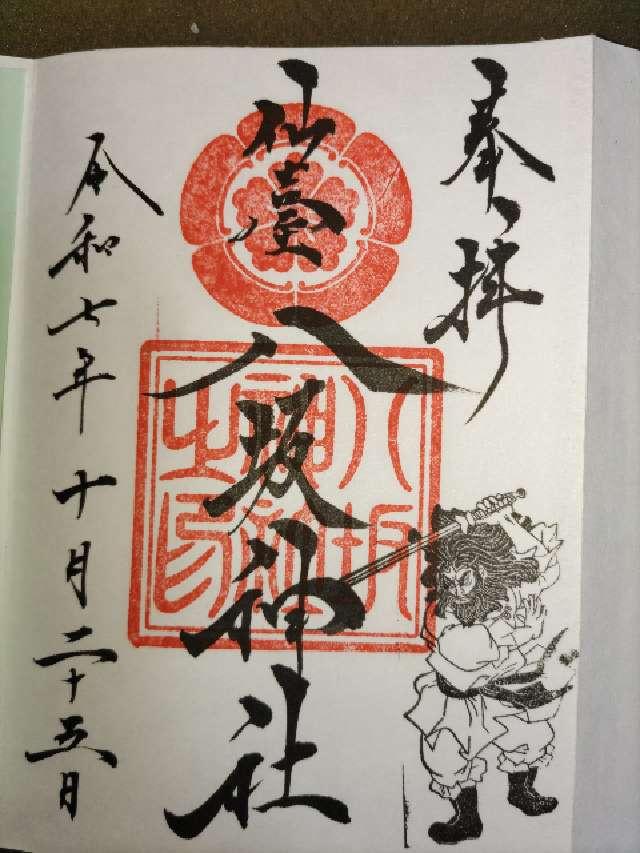 奉拝
仙臺
八坂神社
八坂神社之印
令和七年十月二十五日